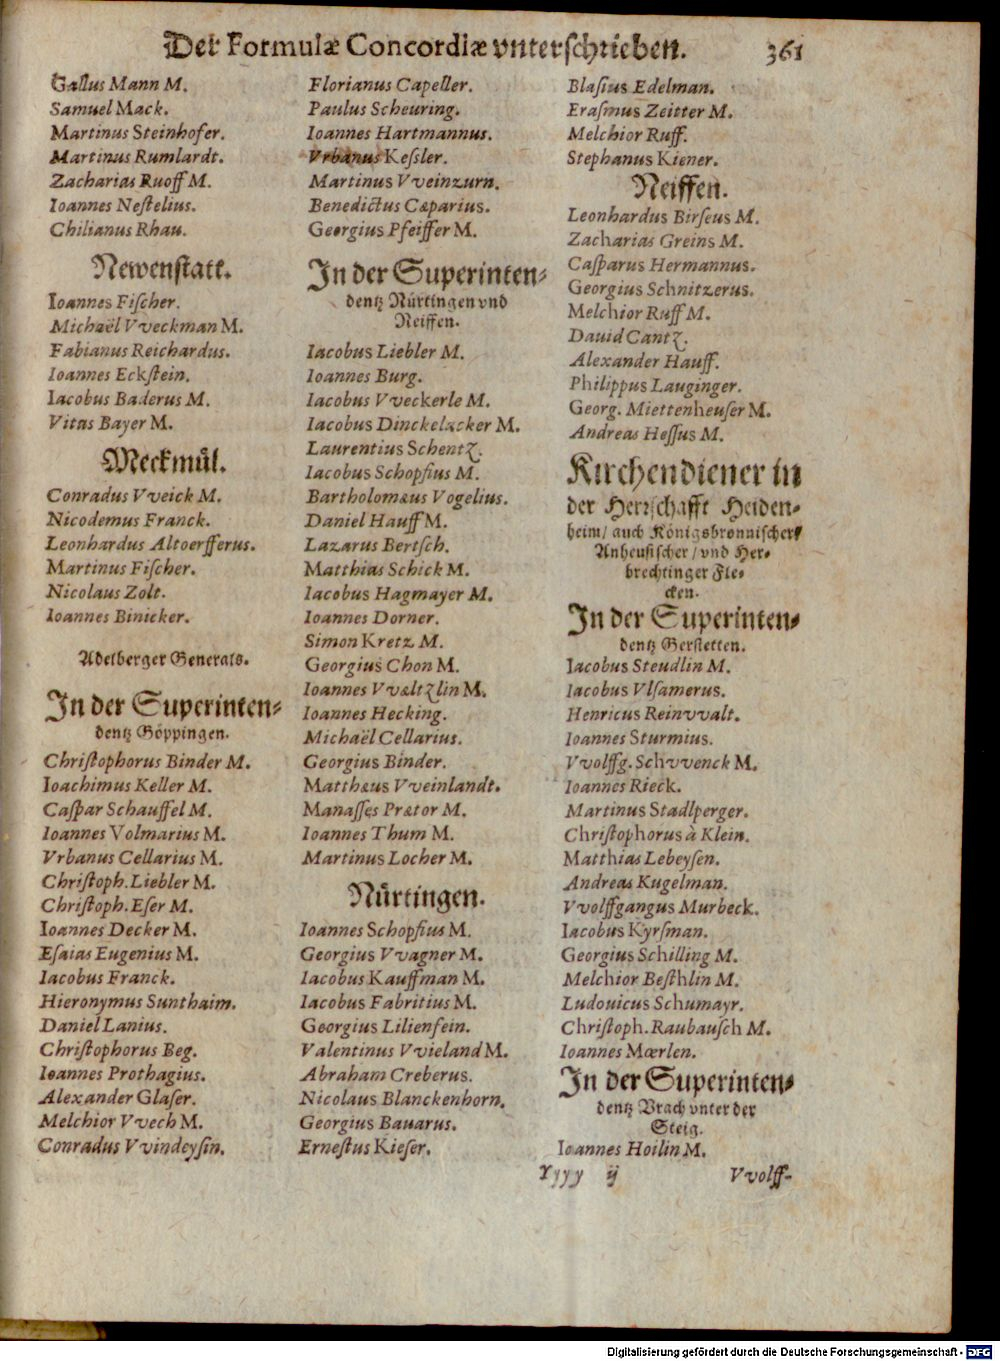 Der Formulæ Concordiæ vnterschrieben. 361
Gallus Mann M.
Samuel Mack.
Martinus Steinhofer.
Martinus Rumlardt.
Zacharias Ruoff M.
Ioannes Nestelius.
Chilianus Rhau.
Newenstatt.
Ioannes Fischer.
Michaël Vveckman M.
Fabianus Reichardus.
Ioannes Eckstein.
Iacobus Baderus M.
Vitus Bayer M.
Meckmül.
Conradus Vveick M.
Nicodemus Franck.
Leonhardus Altoerfferus.
Martinus Fischer.
Nicolaus Zolt.
Ioannes Binicker.
Adelberger Generals.
In der Superinten-
dentz Göppingen.
Christophorus Binder M.
Ioachimus Keller M.
Caspar Schauffel M.
Ioannes Volmarius M.
Vrbanus Cellarius M.
Christoph. Liebler M.
Christoph. Eser M.
Ioannes Decker M.
Esaias Eugenius M.
Iacobus Franck.
Hieronymus Sunthaim.
Daniel Lanius.
Christophorus Beg.
Ioannes Prothagius.
Alexander Glaser.
Melchior Vvech M.
Conradus Vvindeysin.
Florianus Capeller.
Paulus Scheuring.
Ioannes Hartmannus.
Vrbanus Kessler.
Martinus Vveinzurn.
Benedictus Cæparius.
Georgius Pfeiffer M.
In der Superinten-
dentz Nürtingen vnd
Neiffen.
Iacobus Liebler M.
Ioannes Burg.
Iacobus Vveckerle M.
Iacobus Dinckelacker M.
Laurentius Schentz.
Iacobus Schopfius M.
Bartholomæus Vogelius.
Daniel Hauff M.
Lazarus Bertsch.
Matthias Schick M.
Iacobus Hagmayer M.
Ioannes Dorner.
Simon Kretz M.
Georgius Chon M.
Ioannes Vvæltzlin M.
Ioannes Hecking.
Michaël Cellarius.
Georgius Binder.
Matthæus Vveinlandt.
Manasses Prætor M.
Ioannes Thum M.
Martinus Locher M.
Nürtingen.
Ioannes Schopfius M.
Georgius Vvagner M.
Iacobus Kauffman M.
Iacobus Fabritius M.
Georgius Lilienfein.
Valentinus Vvieland M.
Abraham Creberus.
Nicolaus Blanckenhorn.
Georgius Bauarus.
Ernestus Kieser.
Blasius Edelman.
Erasmus Zeitter M.
Melchior Ruff.
Stephanus Kiener.
Neiffen.
Leonhardus Birseus M.
Zacharias Greins M.
Casparus Hermannus.
Georgius Schnitzerus.
Melchior Ruff M.
Dauid Cantz.
Alexander Hauff.
Philippus Lauginger.
Georg. Miettenheuser M.
Andreas Hessus M.
Kirchendiener in
der Herrschafft Heiden-
heim/ auch Königsbronnischer/
Anheusischer/ vnd Her-
brechtinger Fle-
cken.
In der Superinten-
dentz Gerstetten.
Iacobus Steudlin M.
Iacobus Vlsamerus.
Henricus Reinvvalt.
Ioannes Sturmius.
Vvolffg. Schvvenck M.
Ioannes Rieck.
Martinus Stadlperger.
Christophorus à Klein.
Matthias Lebeysen.
Andreas Kugelman.
Vvolffgangus Murbeck.
Iacobus Kyrsman.
Georgius Schilling M.
Melchior Besthlin M.
Ludouicus Schumayr.
Christoph. Raubausch M.
Ioannes Mœrlen.
In der Superinten-
dentz Vrach vnter der
Steig.
Ioannes Hoilin M.
Yyyy ij Vvolff-
Digitalisierung gefördert durch die Deutsche Forschungsgemeinschaft - DFG